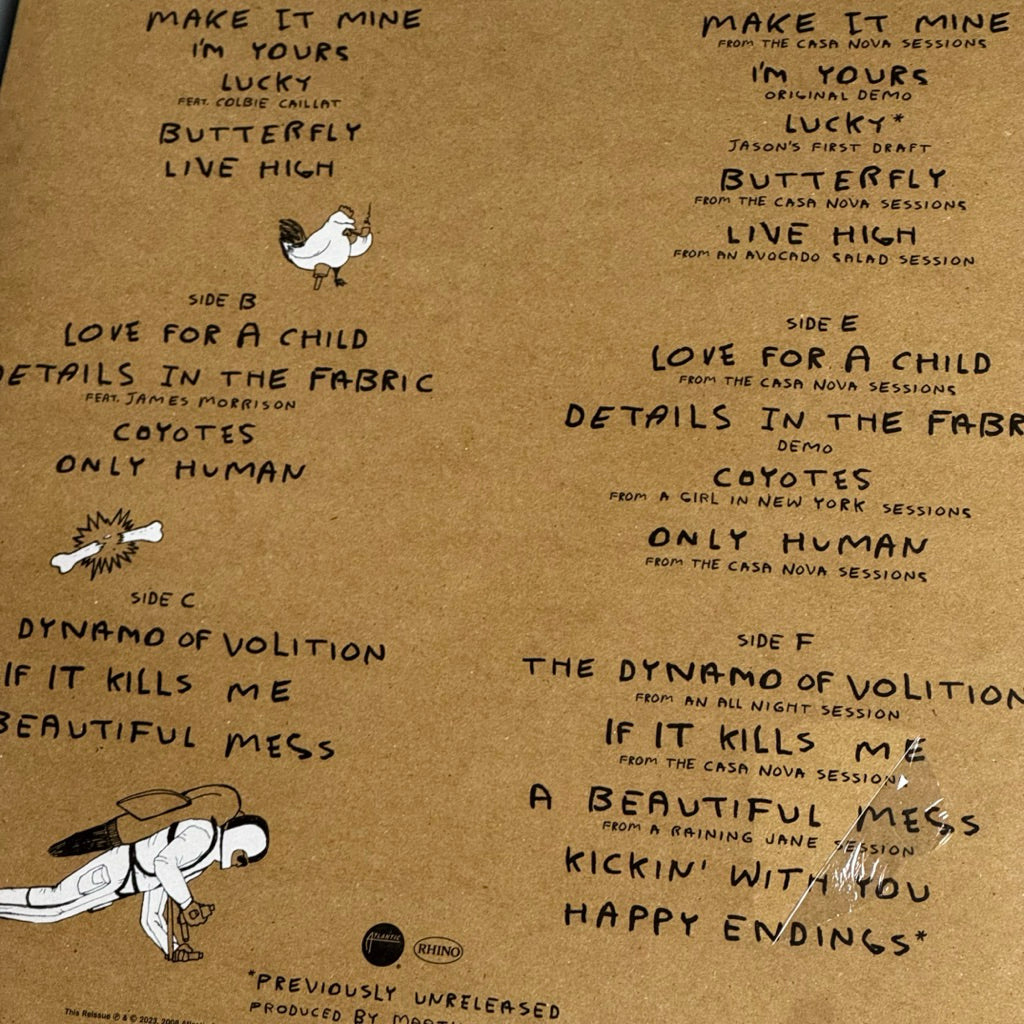 MAKE IT MINE
I'M YOURS
LUCKY
FEAT. COLBIE CAILLAT
BUTTERFLY
LIVE HIGH
SIDE B
LOVE FOR A CHILD
DETAILS IN THE FABRIC
FEAT. JAMES MORRISON
COYOTES
ONLY HUMAN
SIDE C
DYNAMO OF VOLITION
IF IT KILLS ME
BEAUTIFUL MESS
MAKE IT MINE
FROM THE CASA NOVA SESSIONS
I'M YOURS
ORIGINAL DEMO
LUCKY*
JASON'S FIRST DRAFT
BUTTERFLY
FROM THE CASA NOVA SESSIONS
LIVE HIGH
FROM AN AVOCADO SALAD SESSION
SIDE E
LOVE FOR A CHILD
FROM THE CASA NOVA SESSIONS
DETAILS IN THE FABR
DEMO
COYOTES
FROM A GIRL IN NEW YORK SESSIONS
ONLY HUMAN
FROM THE CASA NOVA SESSIONS
SIDE F
THE DYNAMO OF VOLITION
FROM AN ALL NIGHT SESSION
IF IT KILLS ME
FROM THE CASA NOVA SESSION
A BEAUTIFUL MESS
FROM A RAINING JANE SESSION
KICKIN' WITH YOU
HAPPY ENDINGS*
ATLANTIC
RHINO
*PREVIOUSLY UNRELEASED
PRODUCED BY
This Reissue ℗ & © 2023, 2008